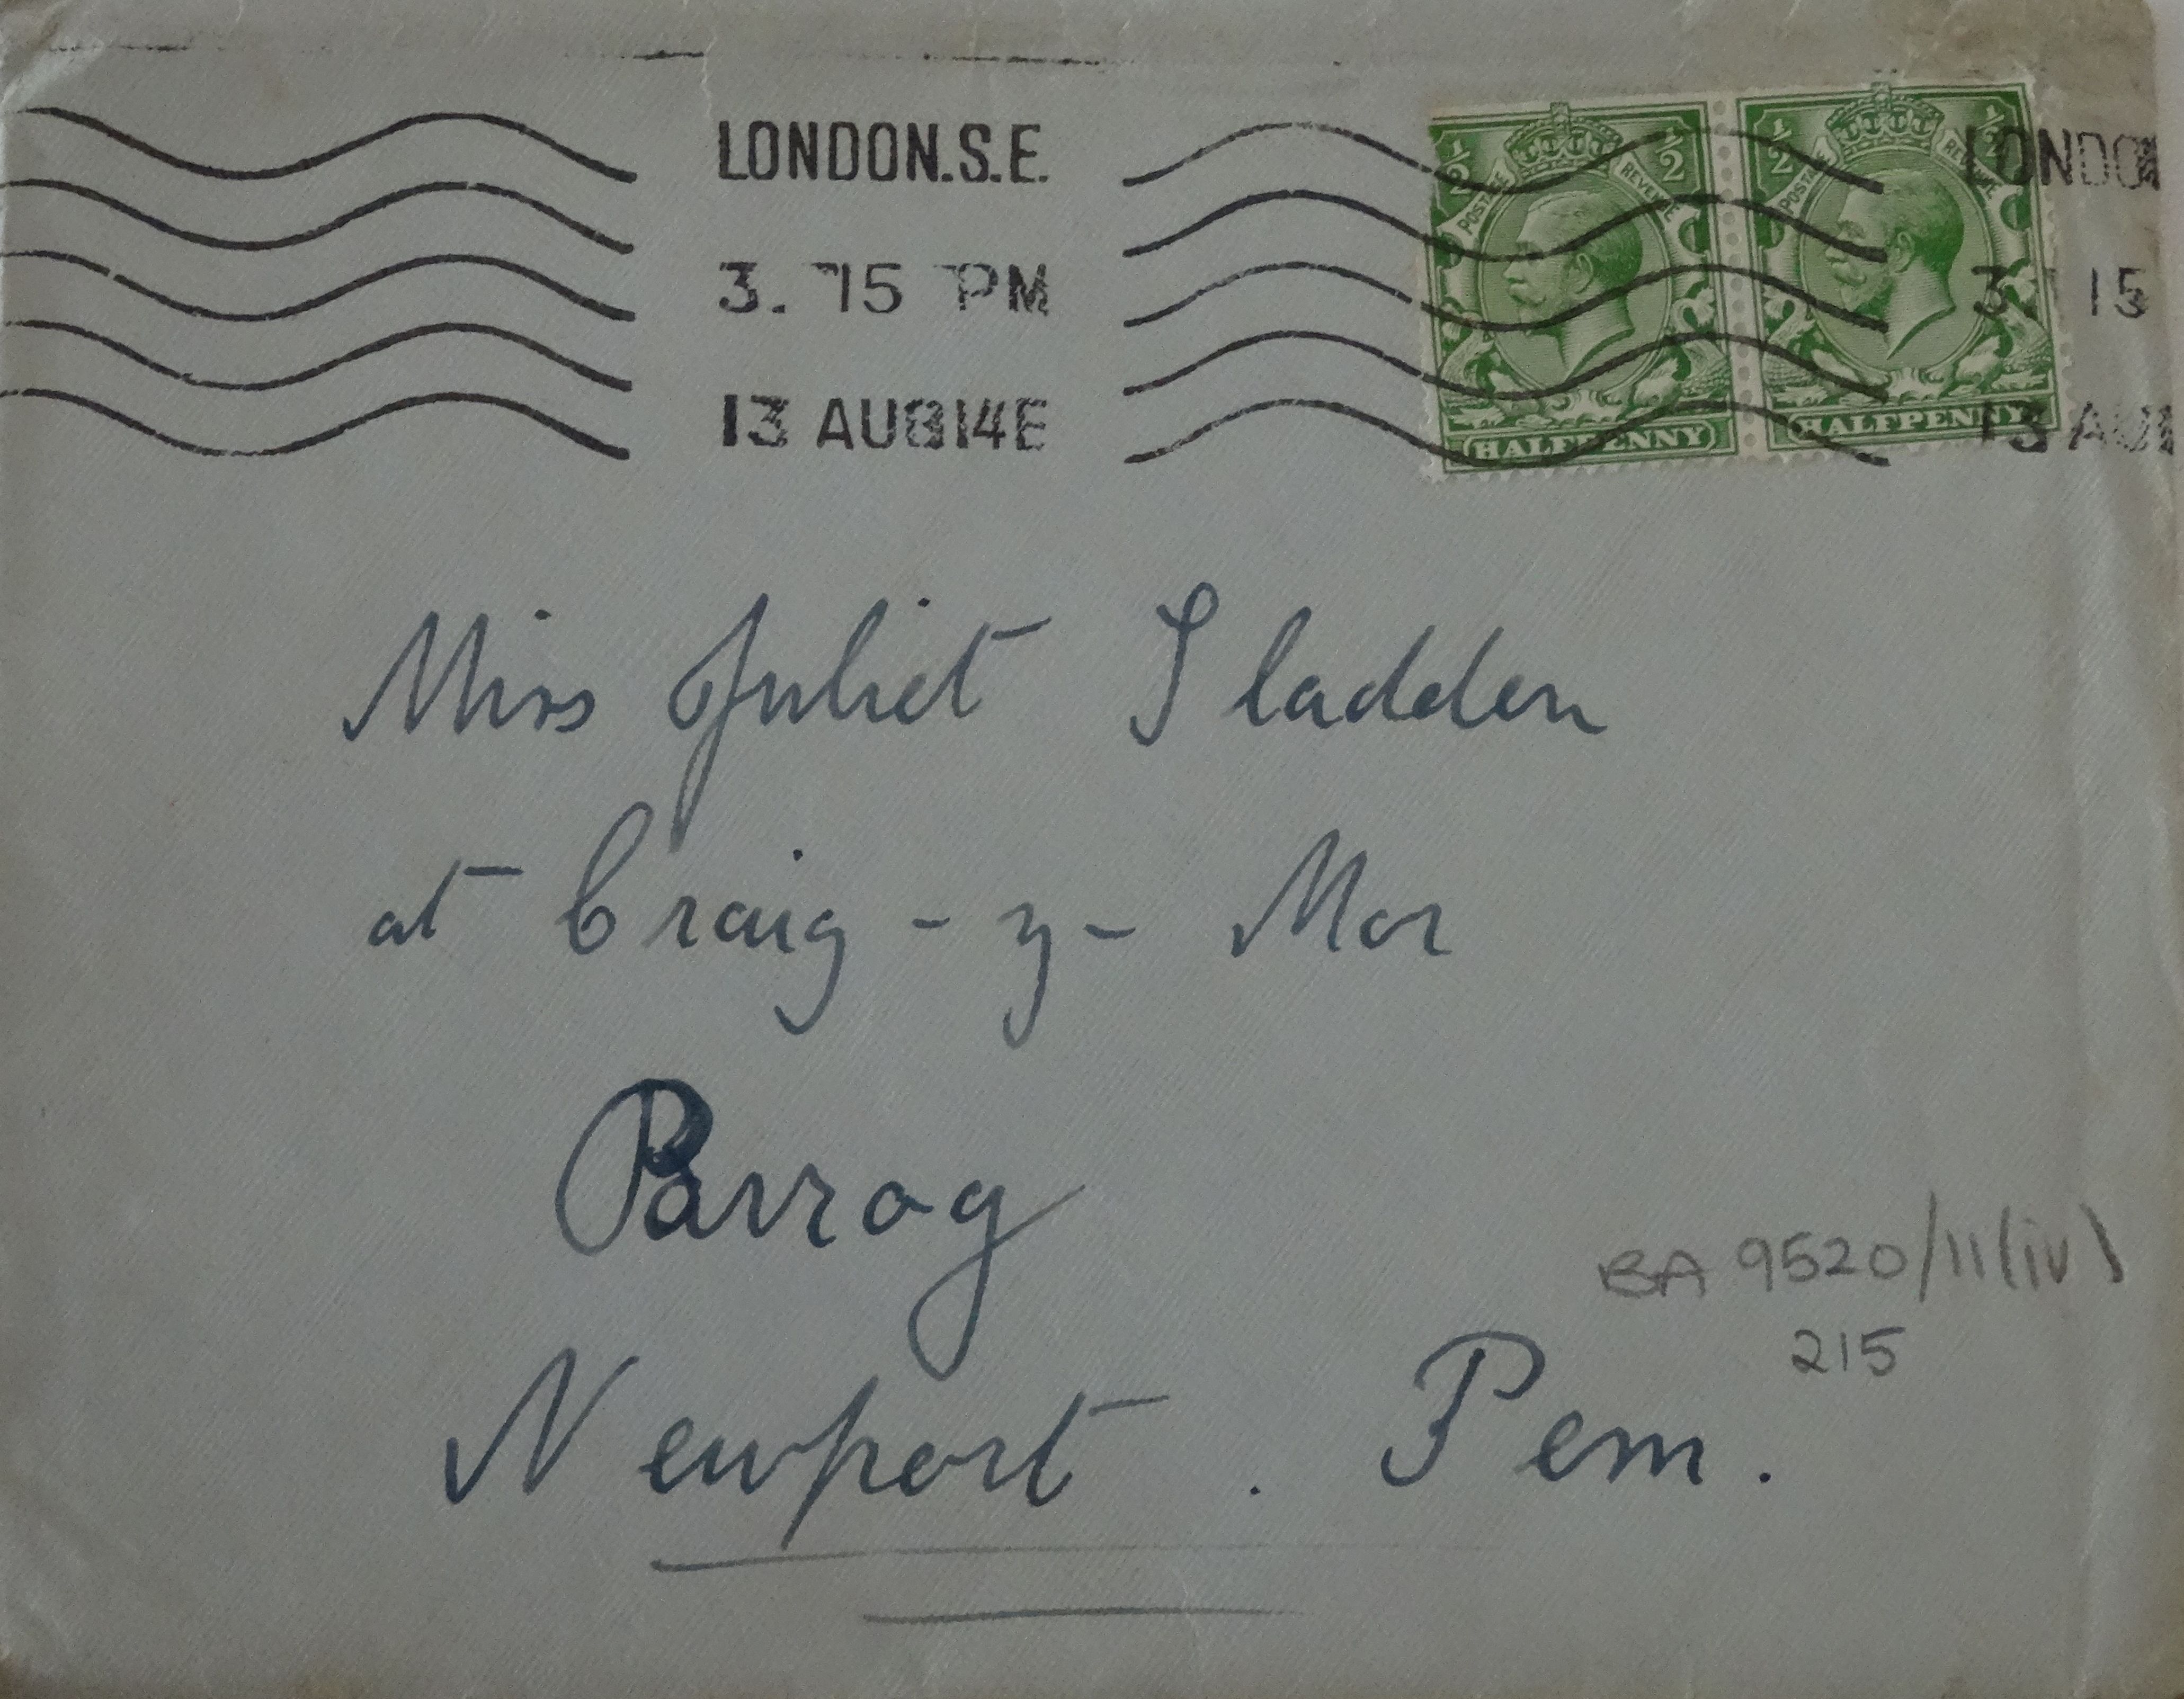 LONDON.S.E.
3. 15 PM
13 AUG 14 E
LONDON
3. 15
13 AUG
½ POSTAGE REVENUE ½
HALFPENNY
½ POSTAGE REVENUE ½
HALFPENNY
Miss Juliet Sladden
at Craig-y-Mor
Parrog
Newport. Pem.
BA 9520/11(iv)
215